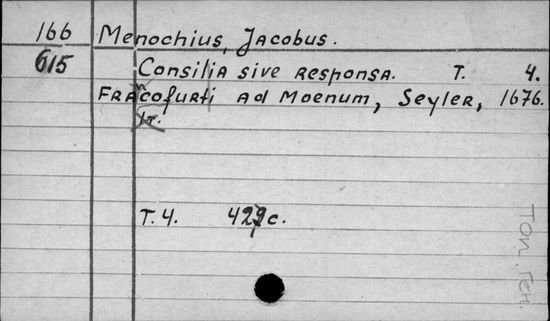 166 Menochius, Jacobus.
615 Consilia sive responsa. T. 4.
Francofurti ad Moenum, Seyler, 1676.
1т.
T. 4. 429 c.